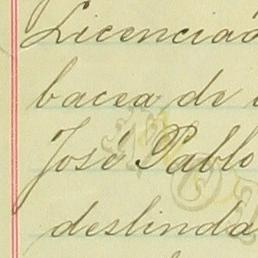 Licenciad
bacea de
José Pablo
deslinda